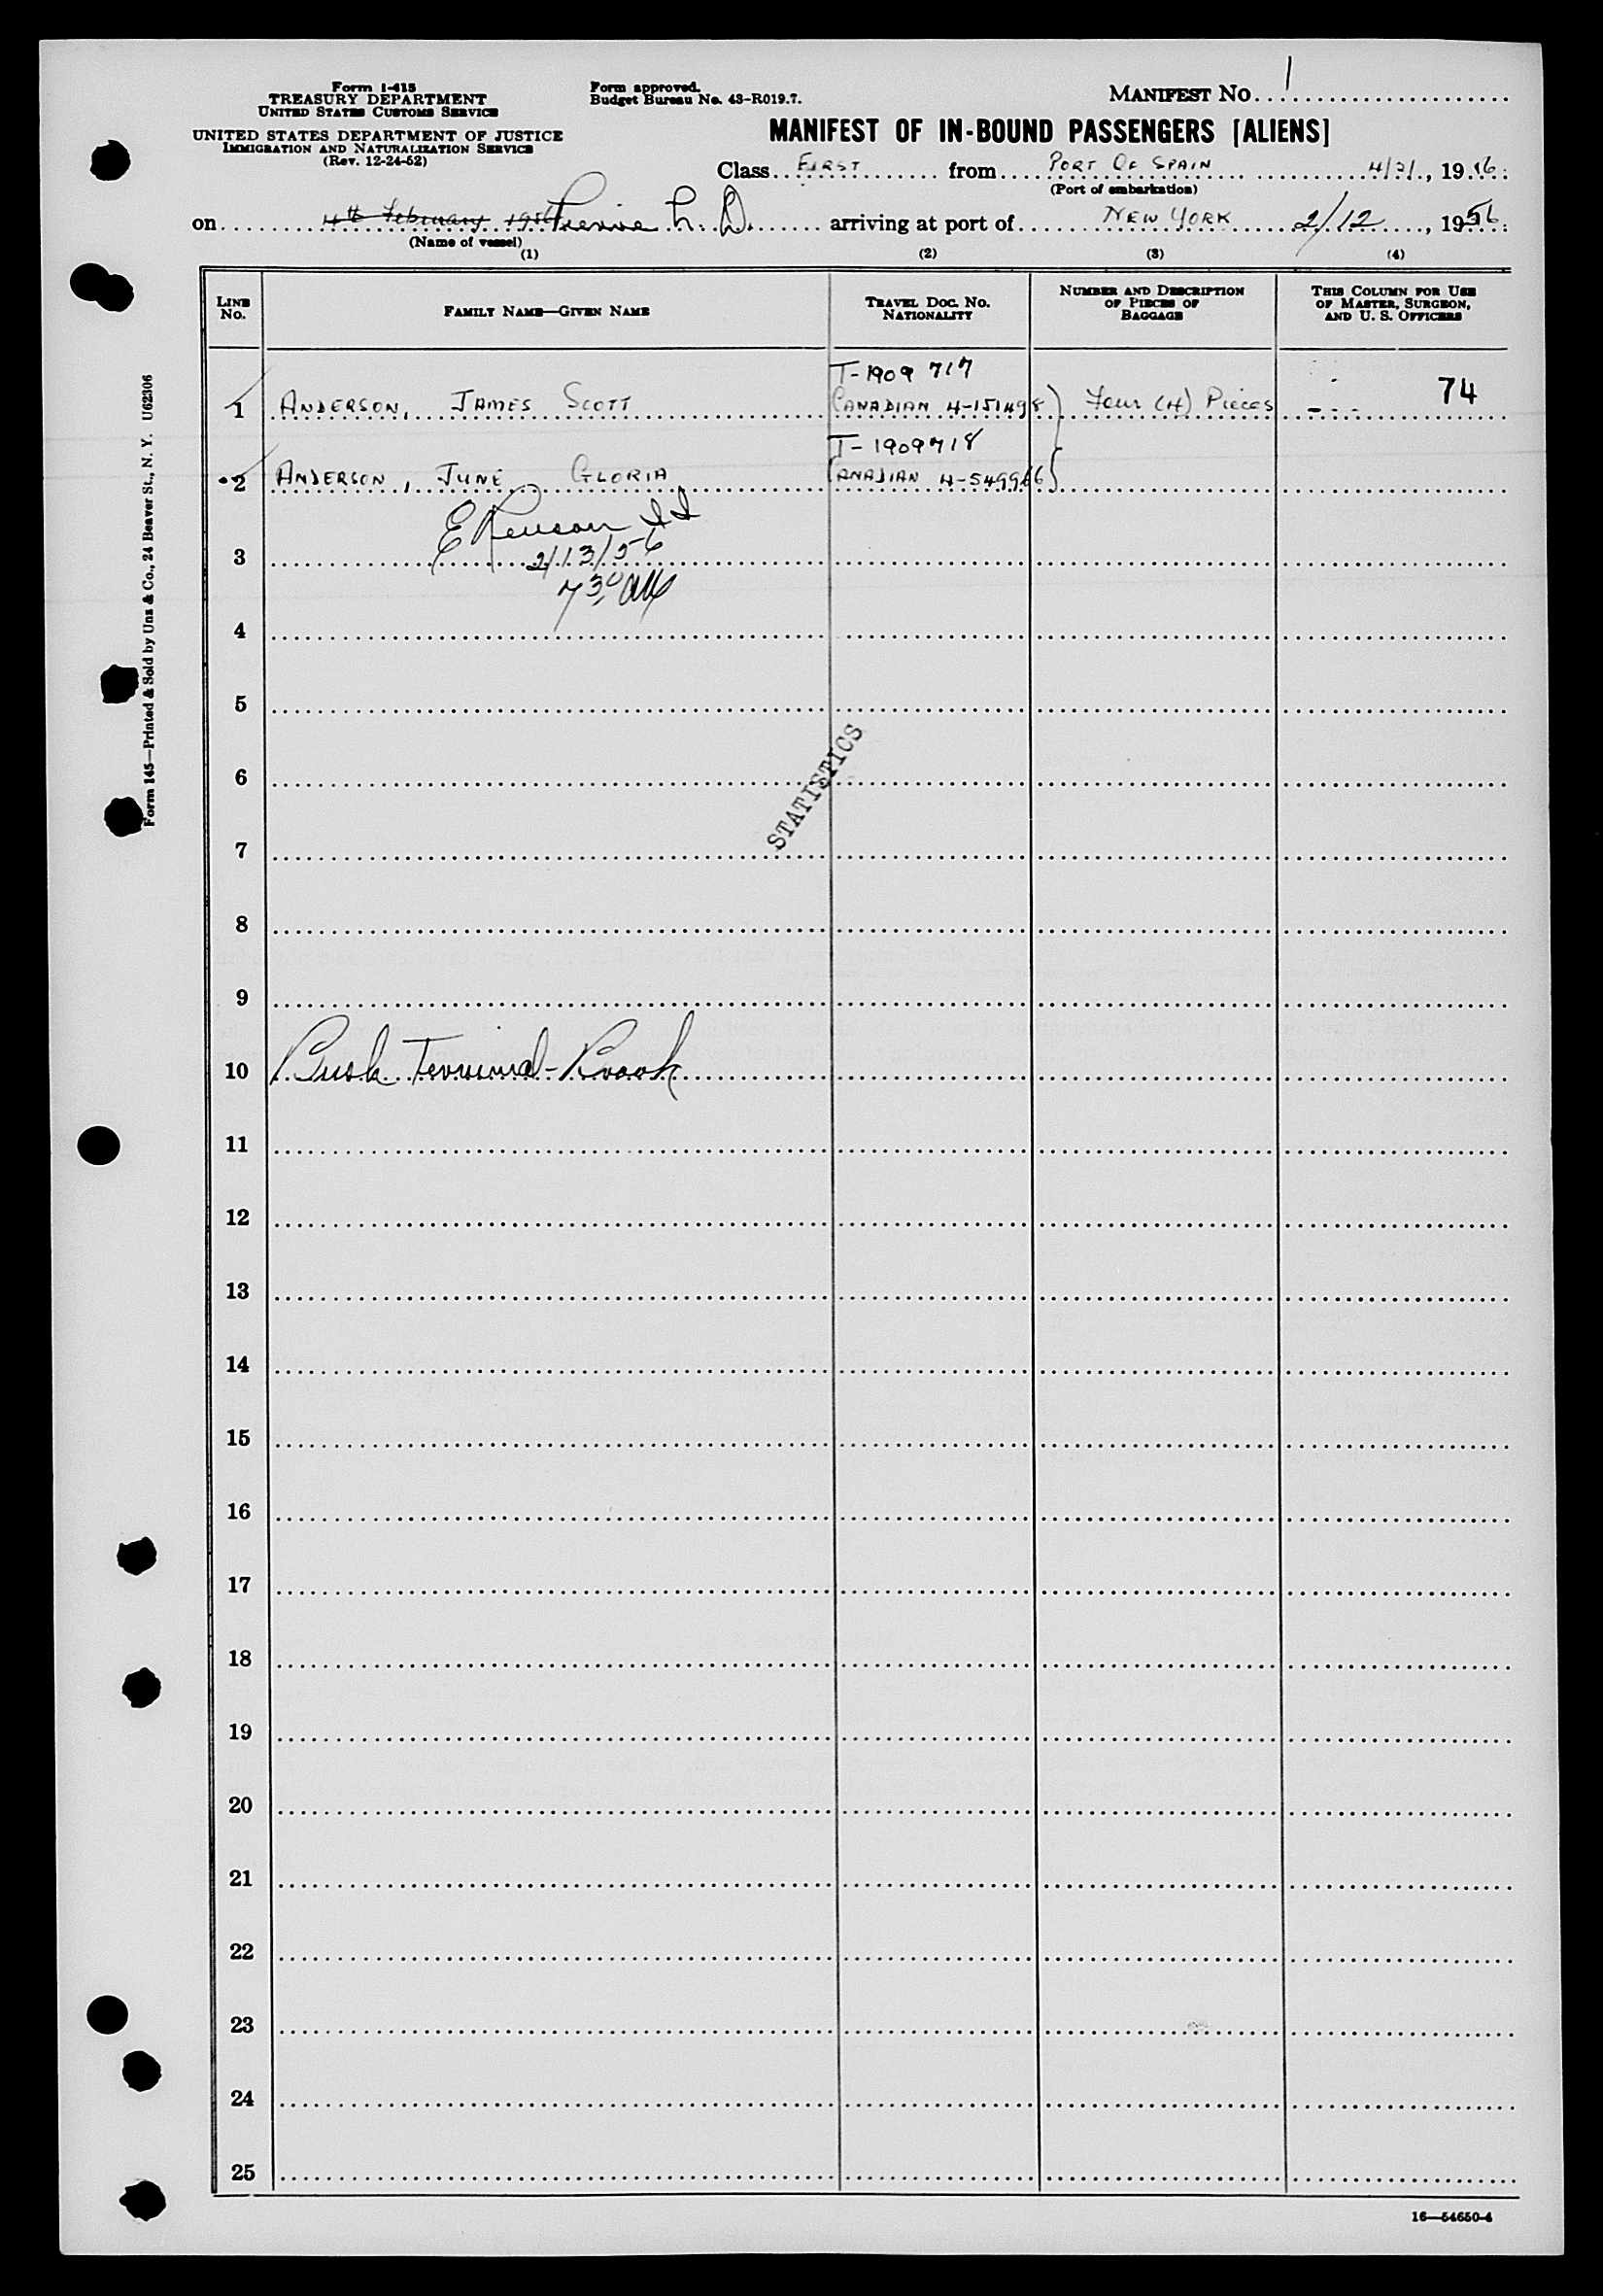 Form I-415
TREASURY DEPARTMENT
UNITED STATES CUSTOMS SERVICE
UNITED STATES DEPARTMENT OF JUSTICE
IMMIGRATION AND NATURALIZATION SERVICE
(Rev. 12-24-52)
Form approved.
Budget Bureau No. 43-R019.7.
MANIFEST No. 1
MANIFEST OF IN-BOUND PASSENGERS [ALIENS]
Class FIRST from PORT OF SPAIN 4/2/, 19
(Port of embarkation)
on 4th February 1956 L. D. arriving at port of NEW YORK 2/12, 1956
(Name of vessel)
(1) (2) (3) (4)
LINE No.
FAMILY NAME—GIVEN NAME
TRAVEL DOC. NO. NATIONALITY
NUMBER AND DESCRIPTION OF PIECES OF BAGGAGE
THIS COLUMN FOR USE OF MASTER, SURGEON, AND U. S. OFFICERS
T-1909 717
1 ANDERSON, JAMES SCOTT CANADIAN 4-151498 Four (4) Pieces 74
T-1909718
2 ANDERSON, JUNE GLORIA CANADIAN 4-549966
3 2/13/56
7 30 AM
4
5
6
STATISTICS
7
8
9
10 Bush Terminal - Brook
11
12
13
14
15
16
17
18
19
20
21
22
23
24
25
16—54650-4
Form 145—Printed & Sold by Unz & Co., 24 Beaver St., N. Y. U62306